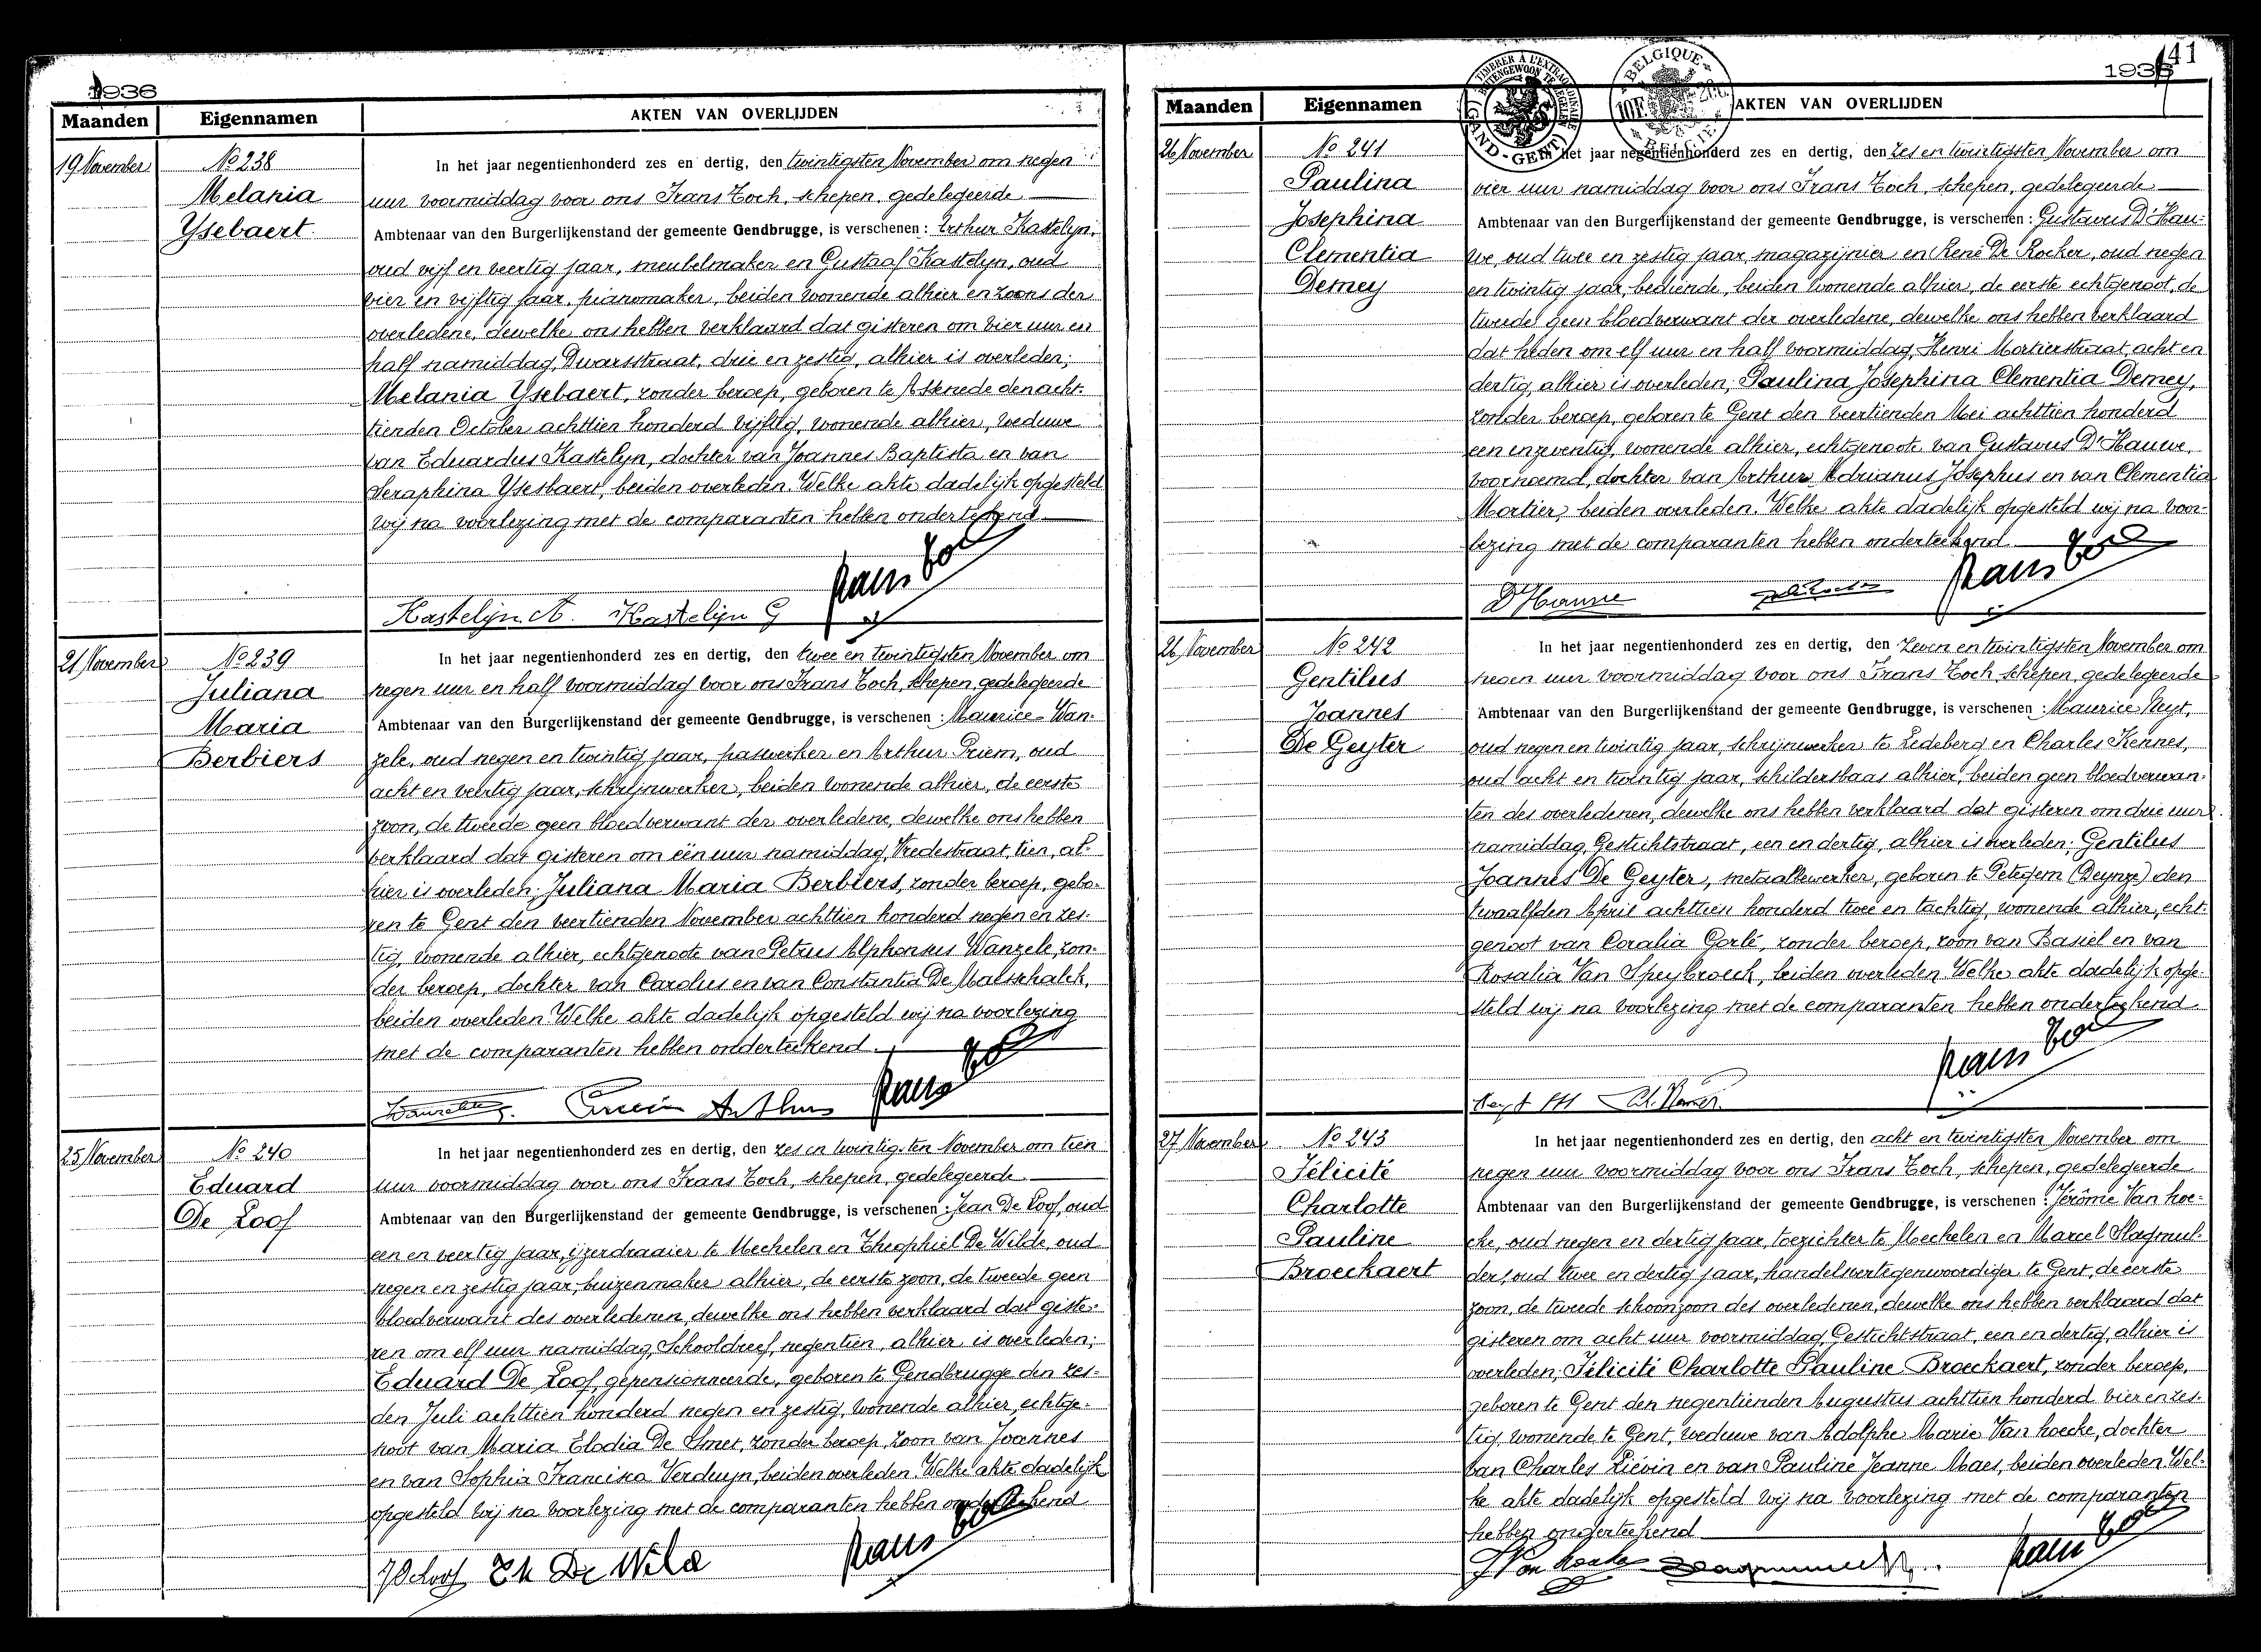 1936
Maanden Eigennamen AKTEN VAN OVERLIJDEN
19 November
No 238
Melania
Ysebaert.
In het jaar negentienhonderd zes en dertig, den twintigsten November om negen
uur voormiddag voor ons Frans Toch, schepen, gedelegeerde
Ambtenaar van den Burgerlijkenstand der gemeente Gendbrugge, is verschenen : Arthur Kastelyn,
oud vijf en veertig jaar, meubelmaker en Gustaaf Kastelyn, oud
vier en vijftig jaar, pianomaker, beiden wonende alhier en zoons der
overledene, dewelke ons hebben verklaard dat gisteren om vier uur en
half namiddag, Dwarsstraat, drie en zestig, alhier is overleden;
Melania Ysebaert, zonder beroep, geboren te Assenede den acht-
tienden October achttien honderd vijftig, wonende alhier, weduwe
van Eduardus Kastelyn, dochter van Joannes Baptista en van
Seraphina Ysebaert, beiden overleden. Welke akte dadelijk opgesteld
wij na voorlezing met de comparanten hebben onderteekend
Kastelijn A. Kastelijn G Frans Toch
21 November
No 239
Juliana
Maria
Berbiers
In het jaar negentienhonderd zes en dertig, den twee en twintigsten November om
negen uur en half voormiddag voor ons Frans Toch, schepen, gedelegeerde
Ambtenaar van den Burgerlijkenstand der gemeente Gendbrugge, is verschenen : Maurice Wan-
zele, oud negen en twintig jaar, paswerker en Arthur Priem, oud
acht en veertig jaar, schrijnwerker, beiden wonende alhier, de eerste
zoon, de tweede geen bloedverwant der overledene, dewelke ons hebben
verklaard dat gisteren om één uur namiddag, Vredestraat, tien, al-
hier is overleden; Juliana Maria Berbiers, zonder beroep, gebo-
ren te Gent den veertienden November achttien honderd negen en zes-
tig, wonende alhier, echtgenoote van Petrus Alphonsus Wanzele, zon-
der beroep, dochter van Carolus en van Constantia De Maeschalck,
beiden overleden. Welke akte dadelijk opgesteld wij na voorlezing
met de comparanten hebben onderteekend.
Wanzele Priem Arthur Frans Toch
25 November
No 240
Eduard
De Loof
In het jaar negentienhonderd zes en dertig, den zes en twintigsten November om tien
uur voormiddag voor ons Frans Toch, schepen, gedelegeerde
Ambtenaar van den Burgerlijkenstand der gemeente Gendbrugge, is verschenen : Jean De Loof, oud
een en veertig jaar, ijzerdraaier te Mechelen en Theophiel De Wilde, oud
negen en zestig jaar, buizenmaker alhier, de eerste zoon, de tweede geen
bloedverwant des overledenen, dewelke ons hebben verklaard dat giste-
ren om elf uur namiddag, Schooldreef, negentien, alhier is overleden;
Eduard De Loof, gepensionneerde, geboren te Gendbrugge den zes-
den Juli achttien honderd negen en zestig, wonende alhier, echtge-
noot van Maria Elodia De Smet, zonder beroep, zoon van Joannes
en van Sophia Francisca Verduyn, beiden overleden. Welke akte dadelijk
opgesteld wij na voorlezing met de comparanten hebben onderteekend
J De Loof Th De Wilde Frans Toch
1936
41
Maanden Eigennamen AKTEN VAN OVERLIJDEN
TIMBRER À L'EXTRAORDINAIRE
BUITENGEWOON TE ZEGELEN
GAND-GENT
BELGIQUE
BELGIE
10F
26 November
No 241
Paulina
Josephina
Clementia
Demey
In het jaar negentienhonderd zes en dertig, den zes en twintigsten November om
vier uur namiddag voor ons Frans Toch, schepen, gedelegeerde
Ambtenaar van den Burgerlijkenstand der gemeente Gendbrugge, is verschenen : Gustavus D'Hau-
we, oud twee en zestig jaar, magazijnier en René De Rocker, oud negen
en twintig jaar, bediende, beiden wonende alhier, de eerste echtgenoot, de
tweede geen bloedverwant der overledene, dewelke ons hebben verklaard
dat heden om elf uur en half voormiddag, Henri Mortierstraat, acht en
dertig, alhier is overleden; Paulina Josephina Clementia Demey,
zonder beroep, geboren te Gent den veertienden Mei achttien honderd
een en zeventig, wonende alhier, echtgenoote van Gustavus D'Hauwe,
voornoemd, dochter van Arthur Adrianus Josephus en van Clementia
Mortier, beiden overleden. Welke akte dadelijk opgesteld wij na voor-
lezing met de comparanten hebben onderteekend.
D'Hauwe Frans Toch
26 November
No 242
Gentilus
Joannes
De Geyter
In het jaar negentienhonderd zes en dertig, den zeven en twintigsten November om
negen uur voormiddag voor ons Frans Toch, schepen, gedelegeerde
Ambtenaar van den Burgerlijkenstand der gemeente Gendbrugge, is verschenen : Maurice Neyt,
oud negen en twintig jaar, schrijnwerker te Ledeberg en Charles Kennes,
oud acht en twintig jaar, schildersbaas alhier, beiden geen bloedverwan-
ten des overledenen, dewelke ons hebben verklaard dat gisteren om drie uur
namiddag, Gestichtstraat, een en dertig, alhier is overleden; Gentilus
Joannes De Geyter, metaalbewerker, geboren te Petegem (Deynze) den
twaalfden April achttien honderd twee en tachtig, wonende alhier, echt-
genoot van Coralia Gorlé, zonder beroep, zoon van Basiel en van
Rosalia Van Speybroeck, beiden overleden. Welke akte dadelijk opge-
steld wij na voorlezing met de comparanten hebben onderteekend.
Neyt M Ch. Kennes Frans Toch
27 November
No 243
Félicité
Charlotte
Pauline
Broeckaert
In het jaar negentienhonderd zes en dertig, den acht en twintigsten November om
negen uur voormiddag voor ons Frans Toch, schepen, gedelegeerde
Ambtenaar van den Burgerlijkenstand der gemeente Gendbrugge, is verschenen : Jérôme Van hoe-
cke, oud negen en dertig jaar, toezichter te Mechelen en Marcel Slagmul-
ders, oud twee en dertig jaar, handelsvertegenwoordiger te Gent, de eerste
zoon, de tweede schoonzoon des overledenen, dewelke ons hebben verklaard dat
gisteren om acht uur voormiddag, Gestichtstraat, een en dertig, alhier is
overleden; Félicité Charlotte Pauline Broeckaert, zonder beroep,
geboren te Gent den negentienden Augustus achttien honderd vier en zes-
tig, wonende te Gent, weduwe van Adolphe Marie Van hoecke, dochter
van Charles Liévin en van Pauline Jeanne Maes, beiden overleden. Wel-
ke akte dadelijk opgesteld wij na voorlezing met de comparanten
hebben onderteekend
J Van hoecke Frans Toch